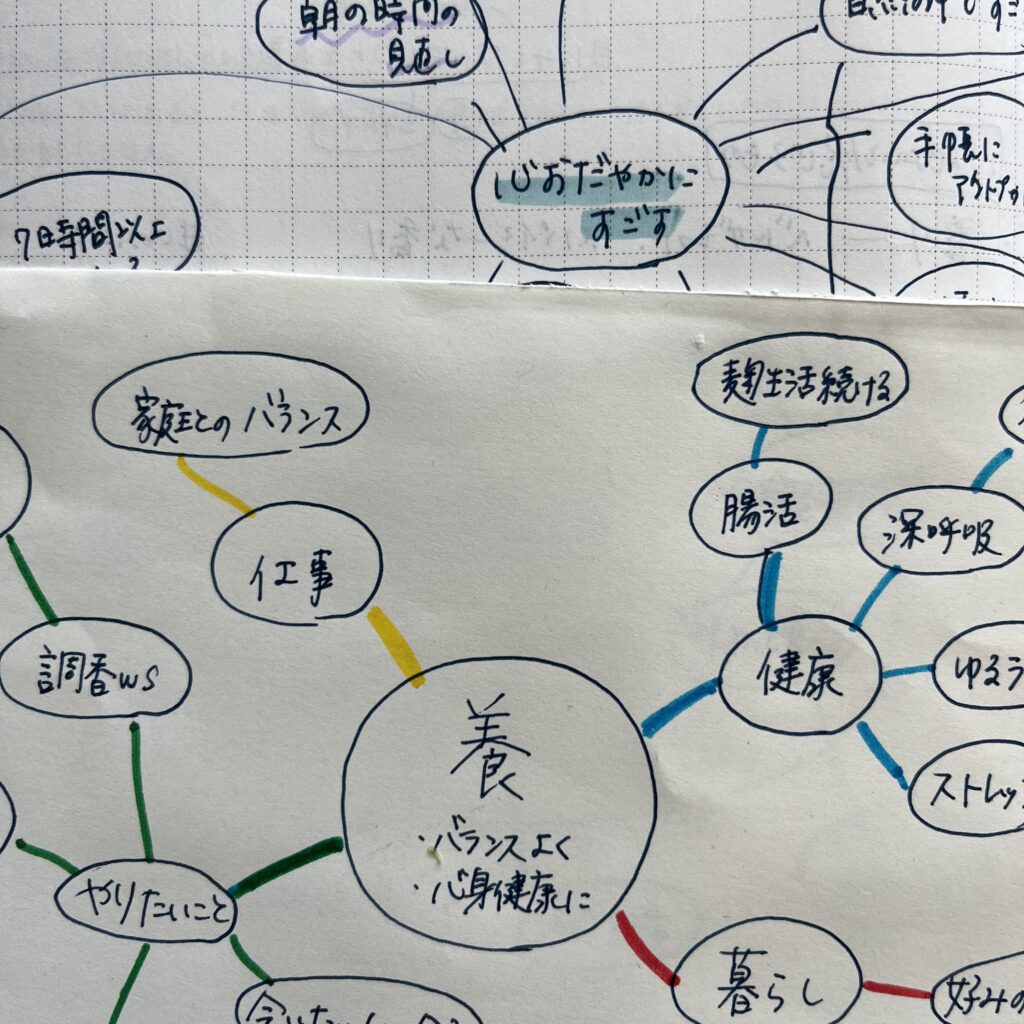 朝の時間の
見直し
心おだやかに
すごす
手帳に
7時間以上
家庭とのバランス
麹生活続ける
腸活
深呼吸
仕事
健康
調香ws
ゆるう
養
・バランスよく
・心身健康に
ストレッ
やりたいこと
暮らし
好みの